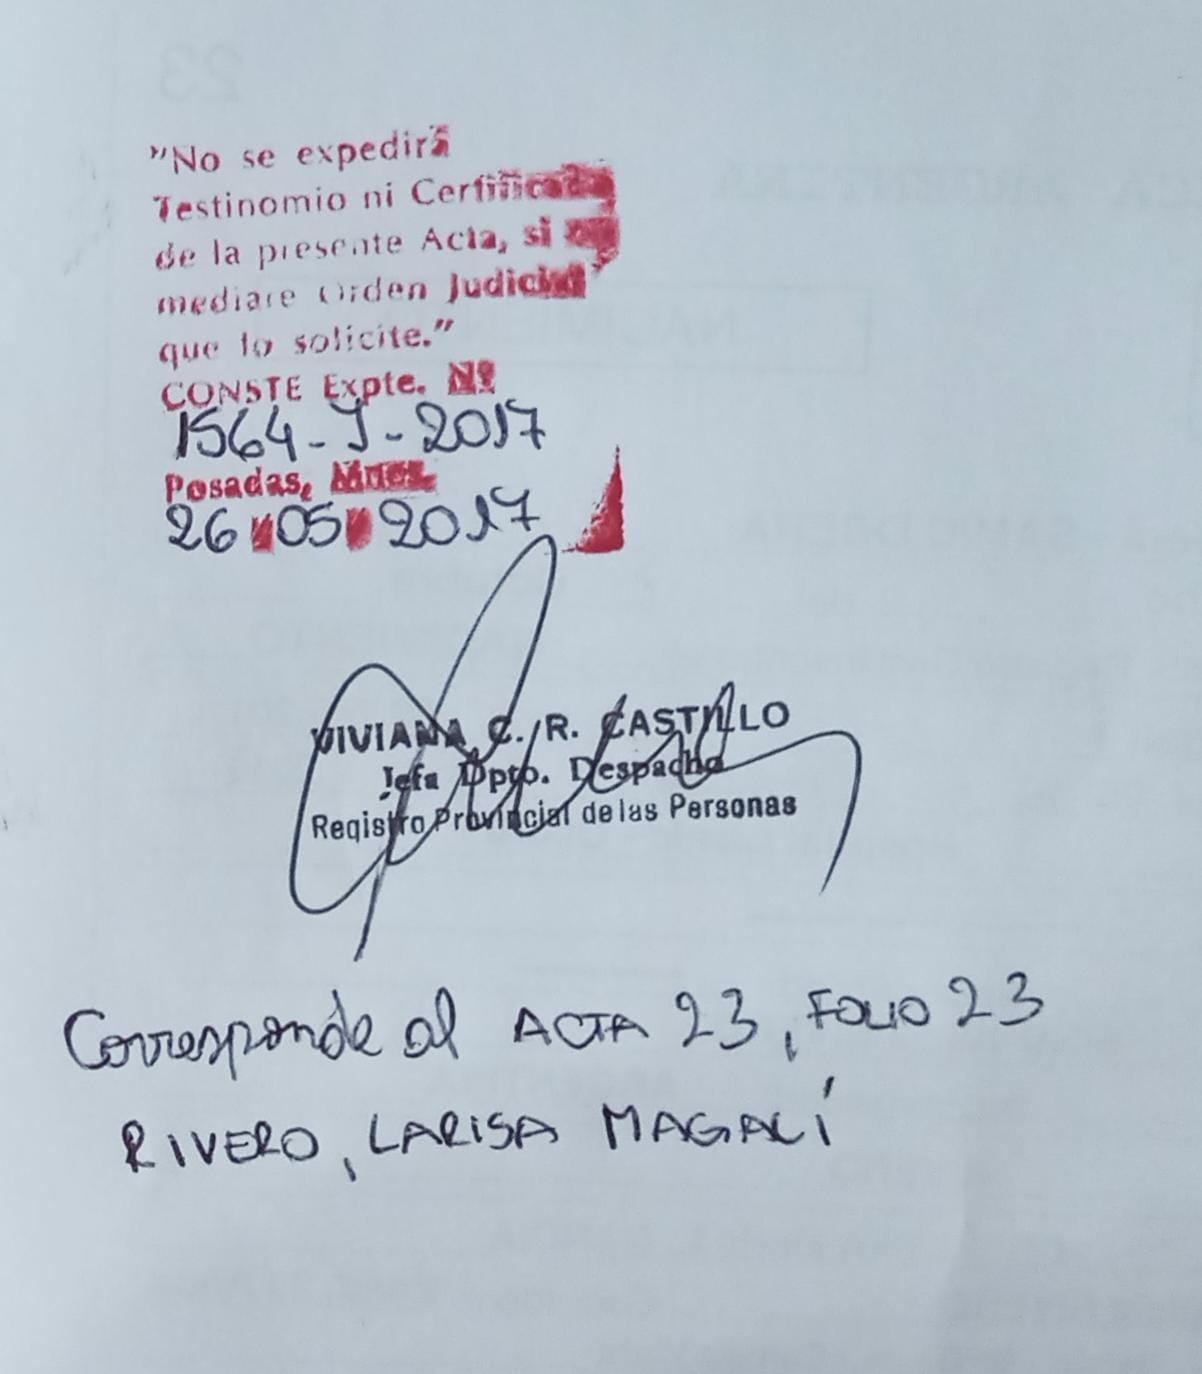 "No se expedirá
Testinomio ni Certificado
de la presente Acta, si no
mediare Orden Judicial
que lo solicite."
CONSTE Expte. Nº
1564-J-2017
Posadas, Mnes.
26 05 2017
VIVIANA C. R. CASTILLO
Jefa Dpto. Despacho
Registro Provincial de las Personas
Corresponde al ACTA 23, FOLIO 23
RIVERO, LARISA MAGALÍ